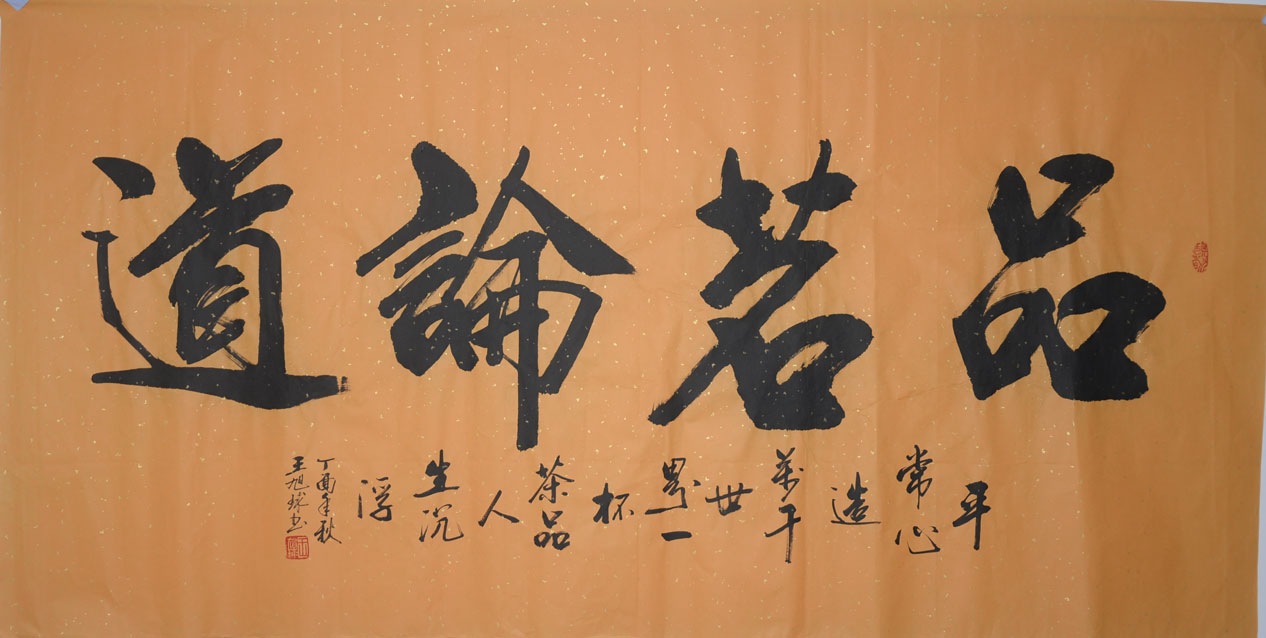 品茗論道
平常心造萬千世界一杯茶品人生沉浮
丁酉年秋
王旭书